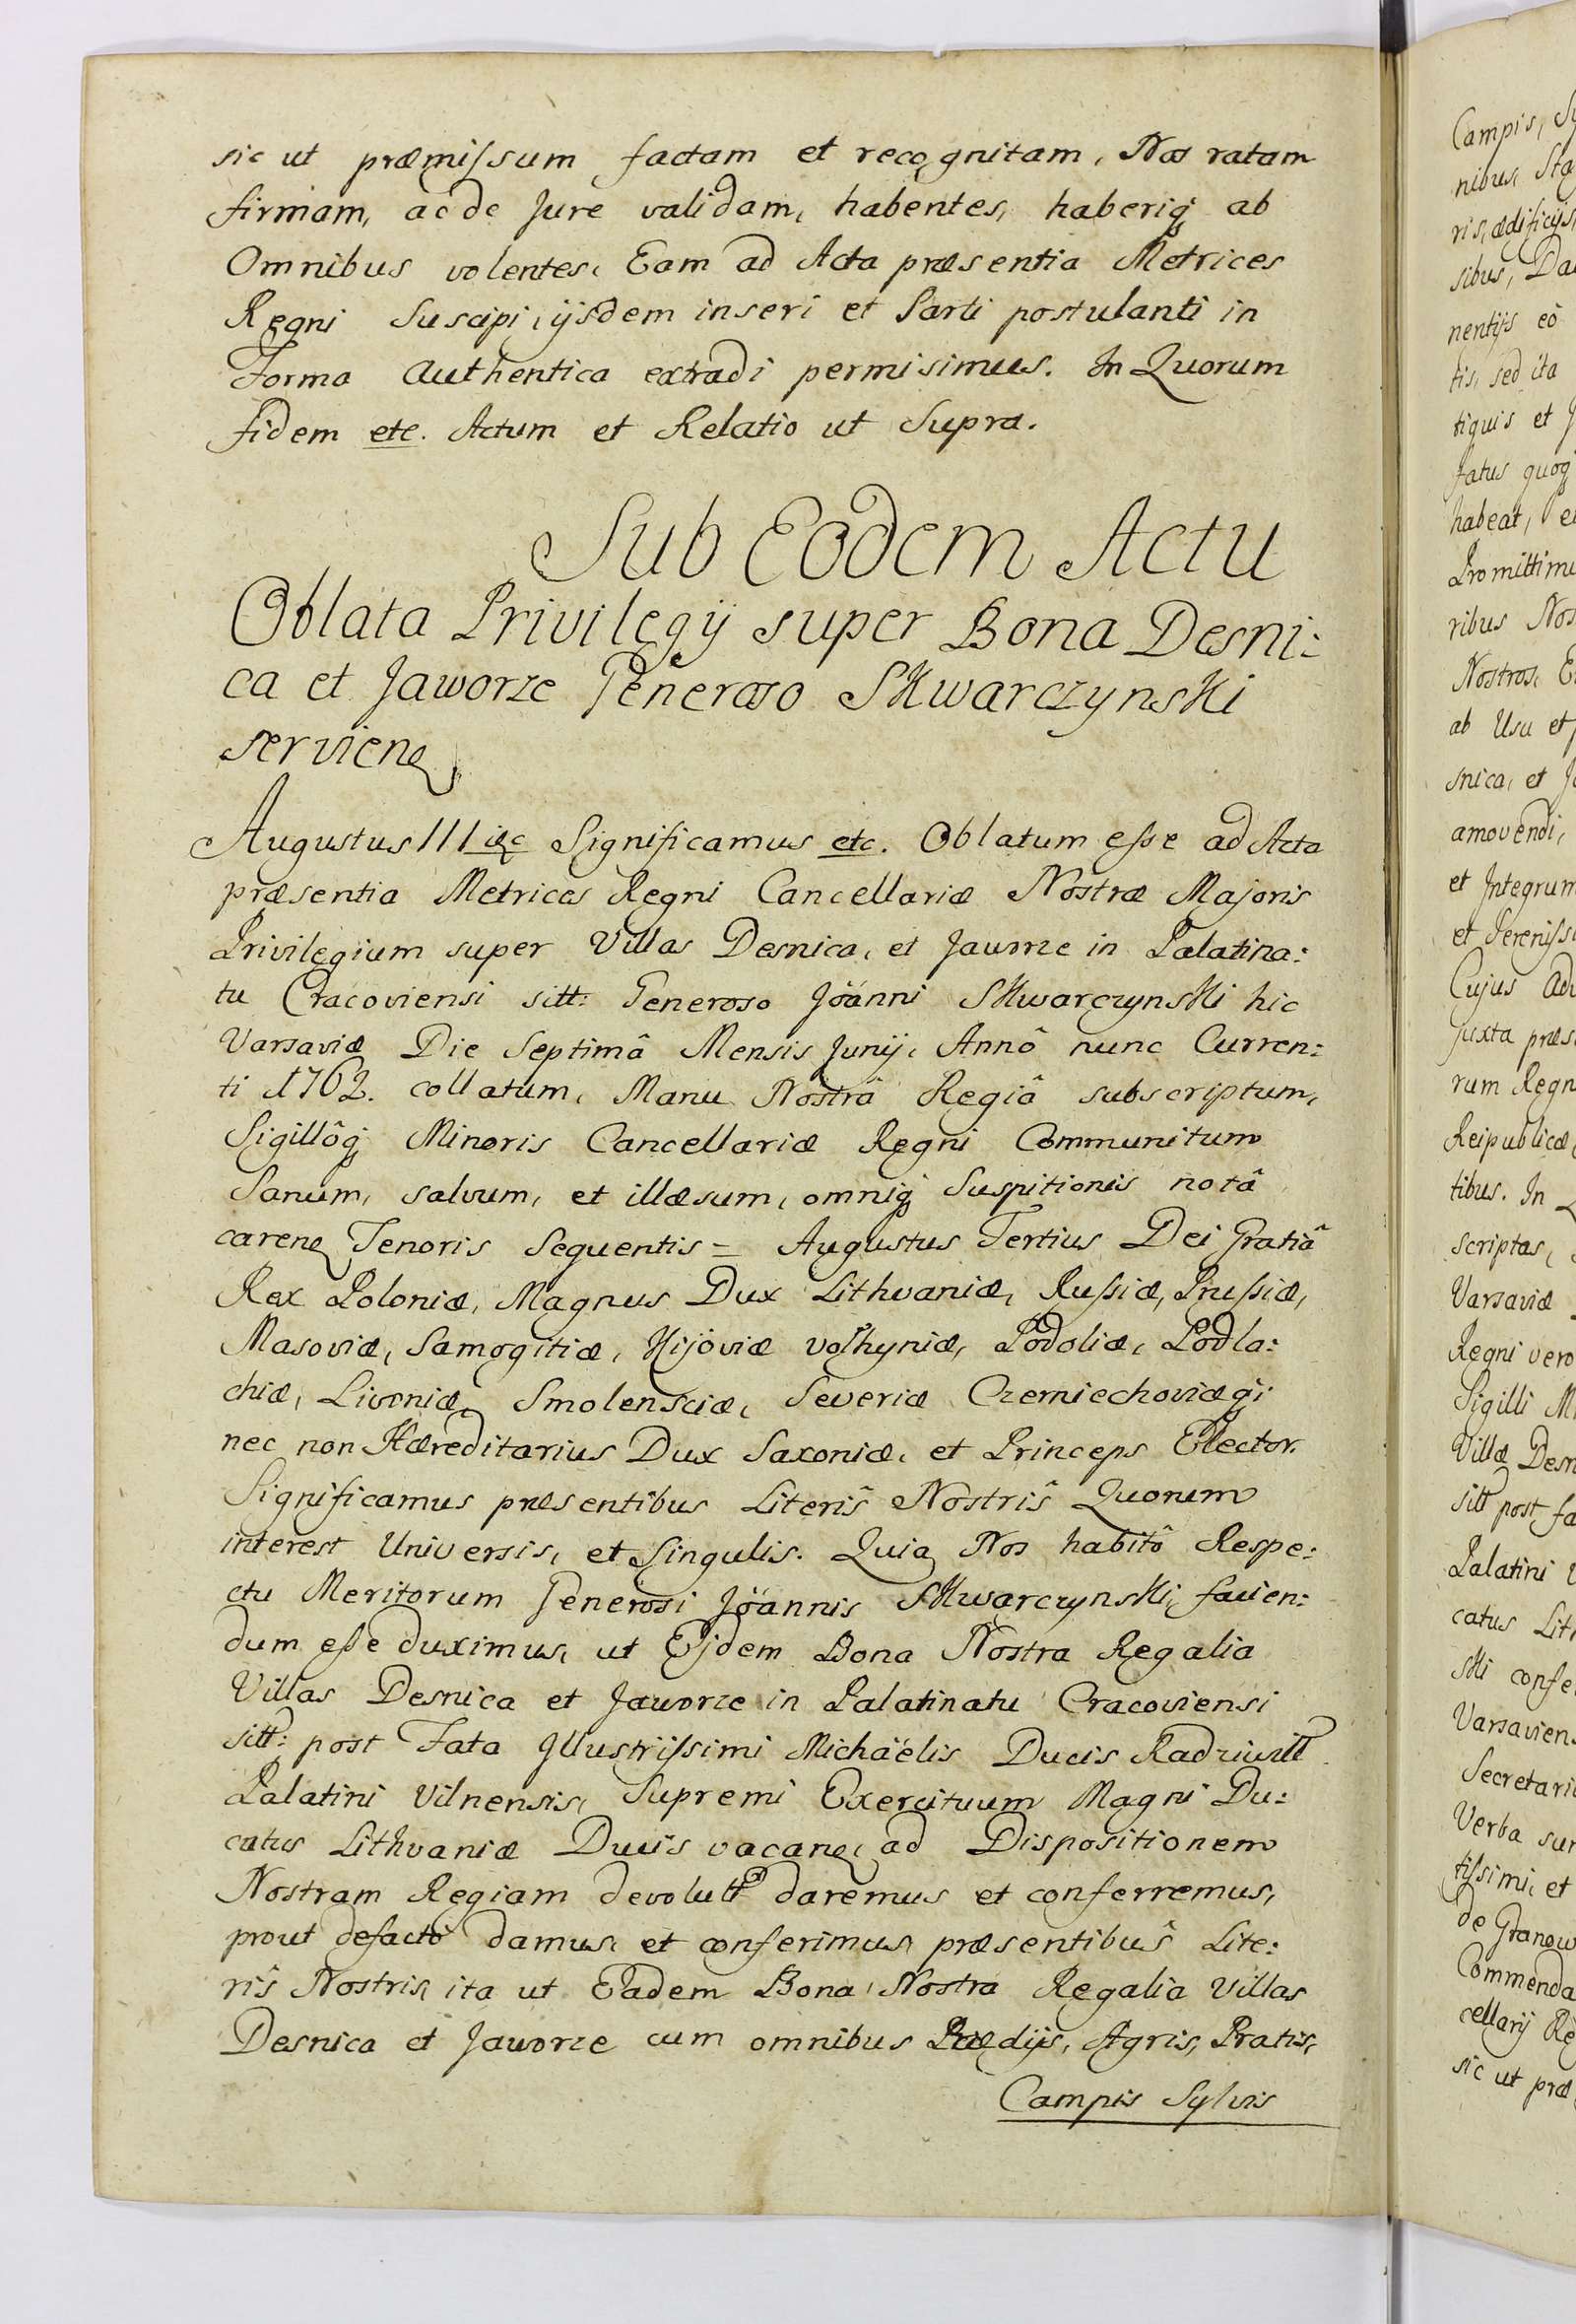 sic ut præmissum factam et recognitam, Nos ratam
firmam, ac de Jure validam, habentes, haberiq ab
Omnibus volentes, Eam ad Acta præsentia Metrices
Regni Suscipi, ijsdem inseri et Parti postulanti in
Forma authentica extradi permisimus. In Quorum
fidem etc. Actum et Relatio ut Supra.
Sub Eodem Actu
Oblata Privilegij super Bona Desni:
ca et Jaworze Generoso Skwarczynski
serviens
Augustus III etc Significamus etc. Oblatum esse ad Acta
præsentia Metrices Regni Cancellariæ Nostræ Majoris
Privilegium super Villas Desnica, et Jaworze in Palatina:
tu Cracoviensi sitt: Generoso Joanni Skwarczynski hic
Varsaviæ Die Septimâ Mensis Junij, Annô nunc Curren:
ti 1762. collatum, Manu Nostrâ Regiâ subscriptum,
Sigillôq Minoris Cancellariæ Regni Communitum
Sanum, salvum, et illæsum, omniq Suspitionis notâ
carens Tenoris Sequentis = Augustus Tertius Dei Gratiâ
Rex Poloniæ, Magnus Dux Lithvaniæ, Russiæ, Prussiæ,
Masoviæ, Samogitiæ, Kijoviæ volhyniæ, Podoliæ, Podla:
chiæ, Livoniæ, Smolensciæ, Severiæ Czerniechoviæq;
nec non Hæreditarius Dux Saxoniæ, et Princeps Elector.
Significamus præsentibus Literis Nostris Quorum
interest Universis, et Singulis. Quia Nos habitô Respe:
ctu Meritorum Generosi Joannis Skwarczynski, facien:
dum esse duximus, ut Ejdem Bona Nostra Regalia
Villas Desnica et Jaworze in Palatinatu Cracoviensi
sitt: post Fata Illustrissimi Michaëlis Ducis Radziwill
Palatini Vilnensis, Supremi Exercituum Magni Du:
catus Lithvaniæ Ducis vacans, ad Dispositionem
Nostram Regiam devolutt daremus et conferremus,
prout defactô damus, et conferimus, præsentibus Lite:
ris Nostris, ita ut Eadem Bona Nostra Regalia Villas
Desnica et Jaworze cum omnibus Prædijs, Agris, Pratis,
Campis Sylvis
Campis,
nibus, Sta
ris, ædificijs,
sibus,
nentijs eô
tis, sed ita
tiquis et
fatus quoq
habeat,
Promittimu
ribus Nos
Nostros,
ab Usu et
snica, et
amovendi,
et Integrum
et Serenissi
Cujus
juxta præs
rum Regn
Reipublicæ
tibus. In
scriptas,
Varsaviæ
Regni vero
Sigilli M
Villæ Desn
sitt post fa
Palatini
catus Lith
ski confe
Varsavien
Secretari
Verba sun
tissimi, et
de Granow
Commenda
cellarij Re
sic ut præ